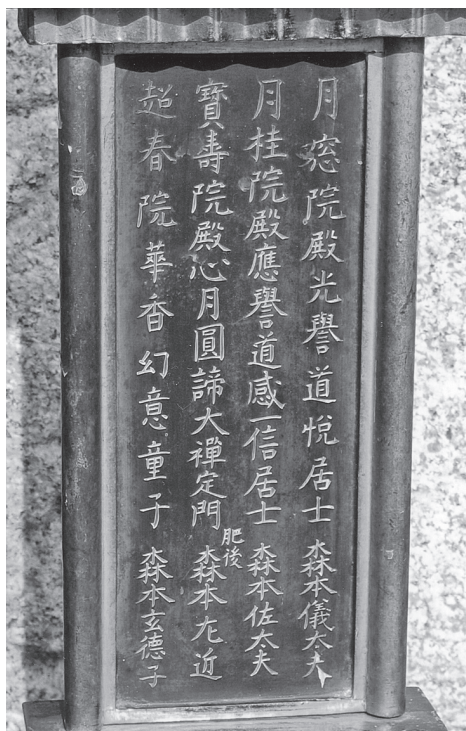 月窓院殿光譽道悅居士 森本儀太夫
月桂院殿應譽道感一信居士 森本佐太夫
寶壽院殿心月圓諦大禪定門 肥後 森本尢近
超春院華香幻意童子 森本玄德子